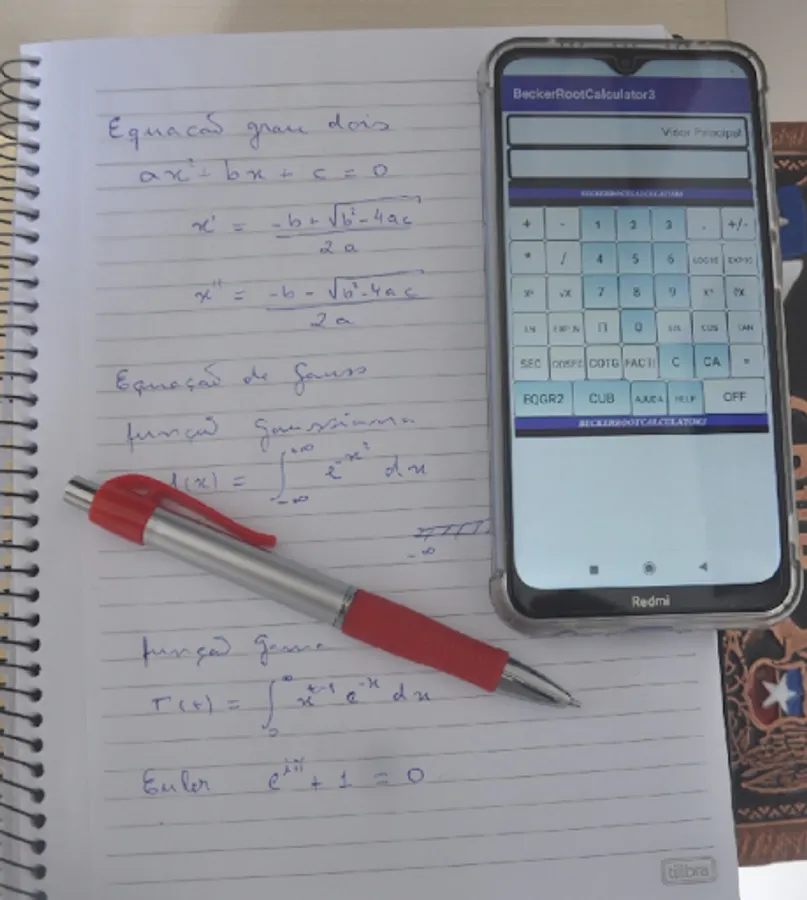 Equação grau dois
ax² + bx + c = 0
x' = -b + √b² - 4ac
2a
x" = -b - √b² - 4ac
2a
Equação de Gauss
função gaussiana
(x) = ∫ +∞ -∞ e^-x² dx
-∞
função gama
Γ(t) = ∫ ∞ 0 x^t-1 e^-x dx
Euler e^iπ + 1 = 0
BeckerRootCalculator3
Visor Principal
BECKERROOTCALCULATOR3
+ - 1 2 3 . +/-
* / 4 5 6 LOG10 EXP10
x² √x 7 8 9
LN EXP N Π 0 COS TAN
SEC COSEC COTG FACT! C CA =
EQGR2 CUB AJUDA HELP OFF
BECKERROOTCALCULATOR3
Redmi
tilibra